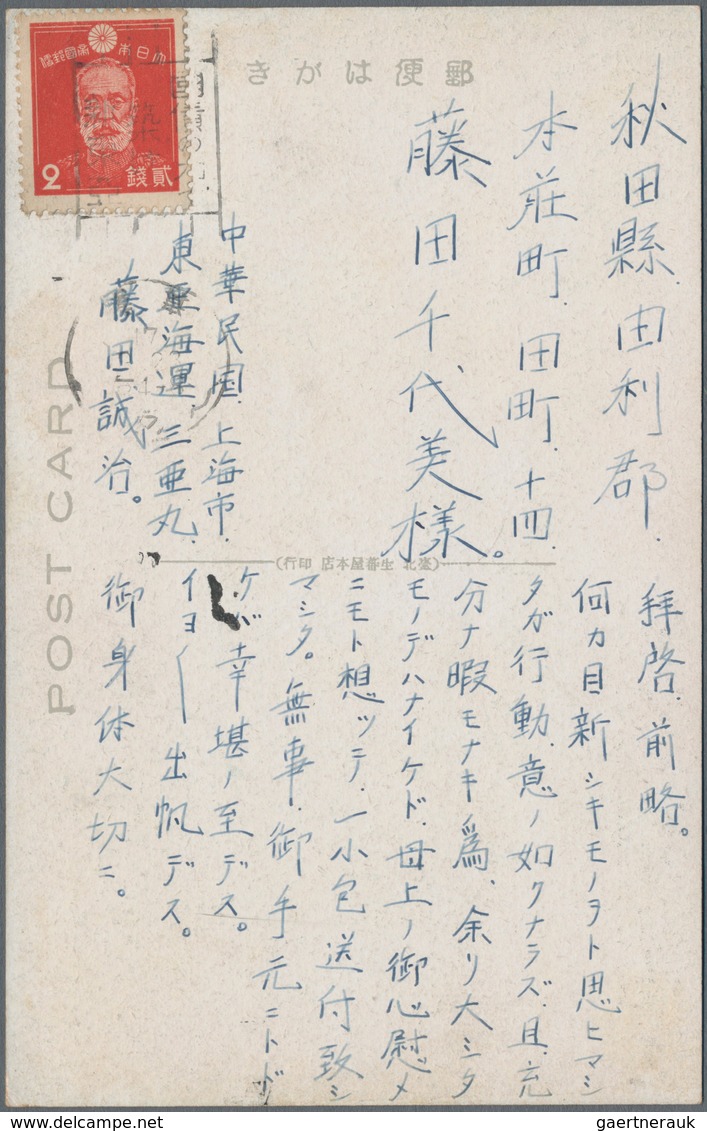 大日本帝國郵便
2
貳錢
郵便はがき
秋田縣由利郡.
本莊町.田町.十四.
藤田千代美様。
中華民国.上海市.
東亜海運 三亜丸.
藤田誠治。
拝啓.前略。
何カ目新シキモノヲト思ヒマシ
タガ行動.意ノ如クナラズ.且.充
分ナ暇モナキ爲、余リ大シタ
モノデハナイケド.母上ノ御心慰メ
ニモト想ッテ.一小包送付致シ
マシタ。無事.御手元ニトド
ケバ幸堪ノ至デス。
イヨ〱出帆デス。
御身体大切ニ。
(臺北 生蕃屋本店 印行)
POST CARD
gaertnerauk